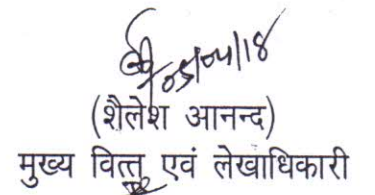 05/04/18
(शैलेश आनन्द)
मुख्य वित्त एवं लेखाधिकारी